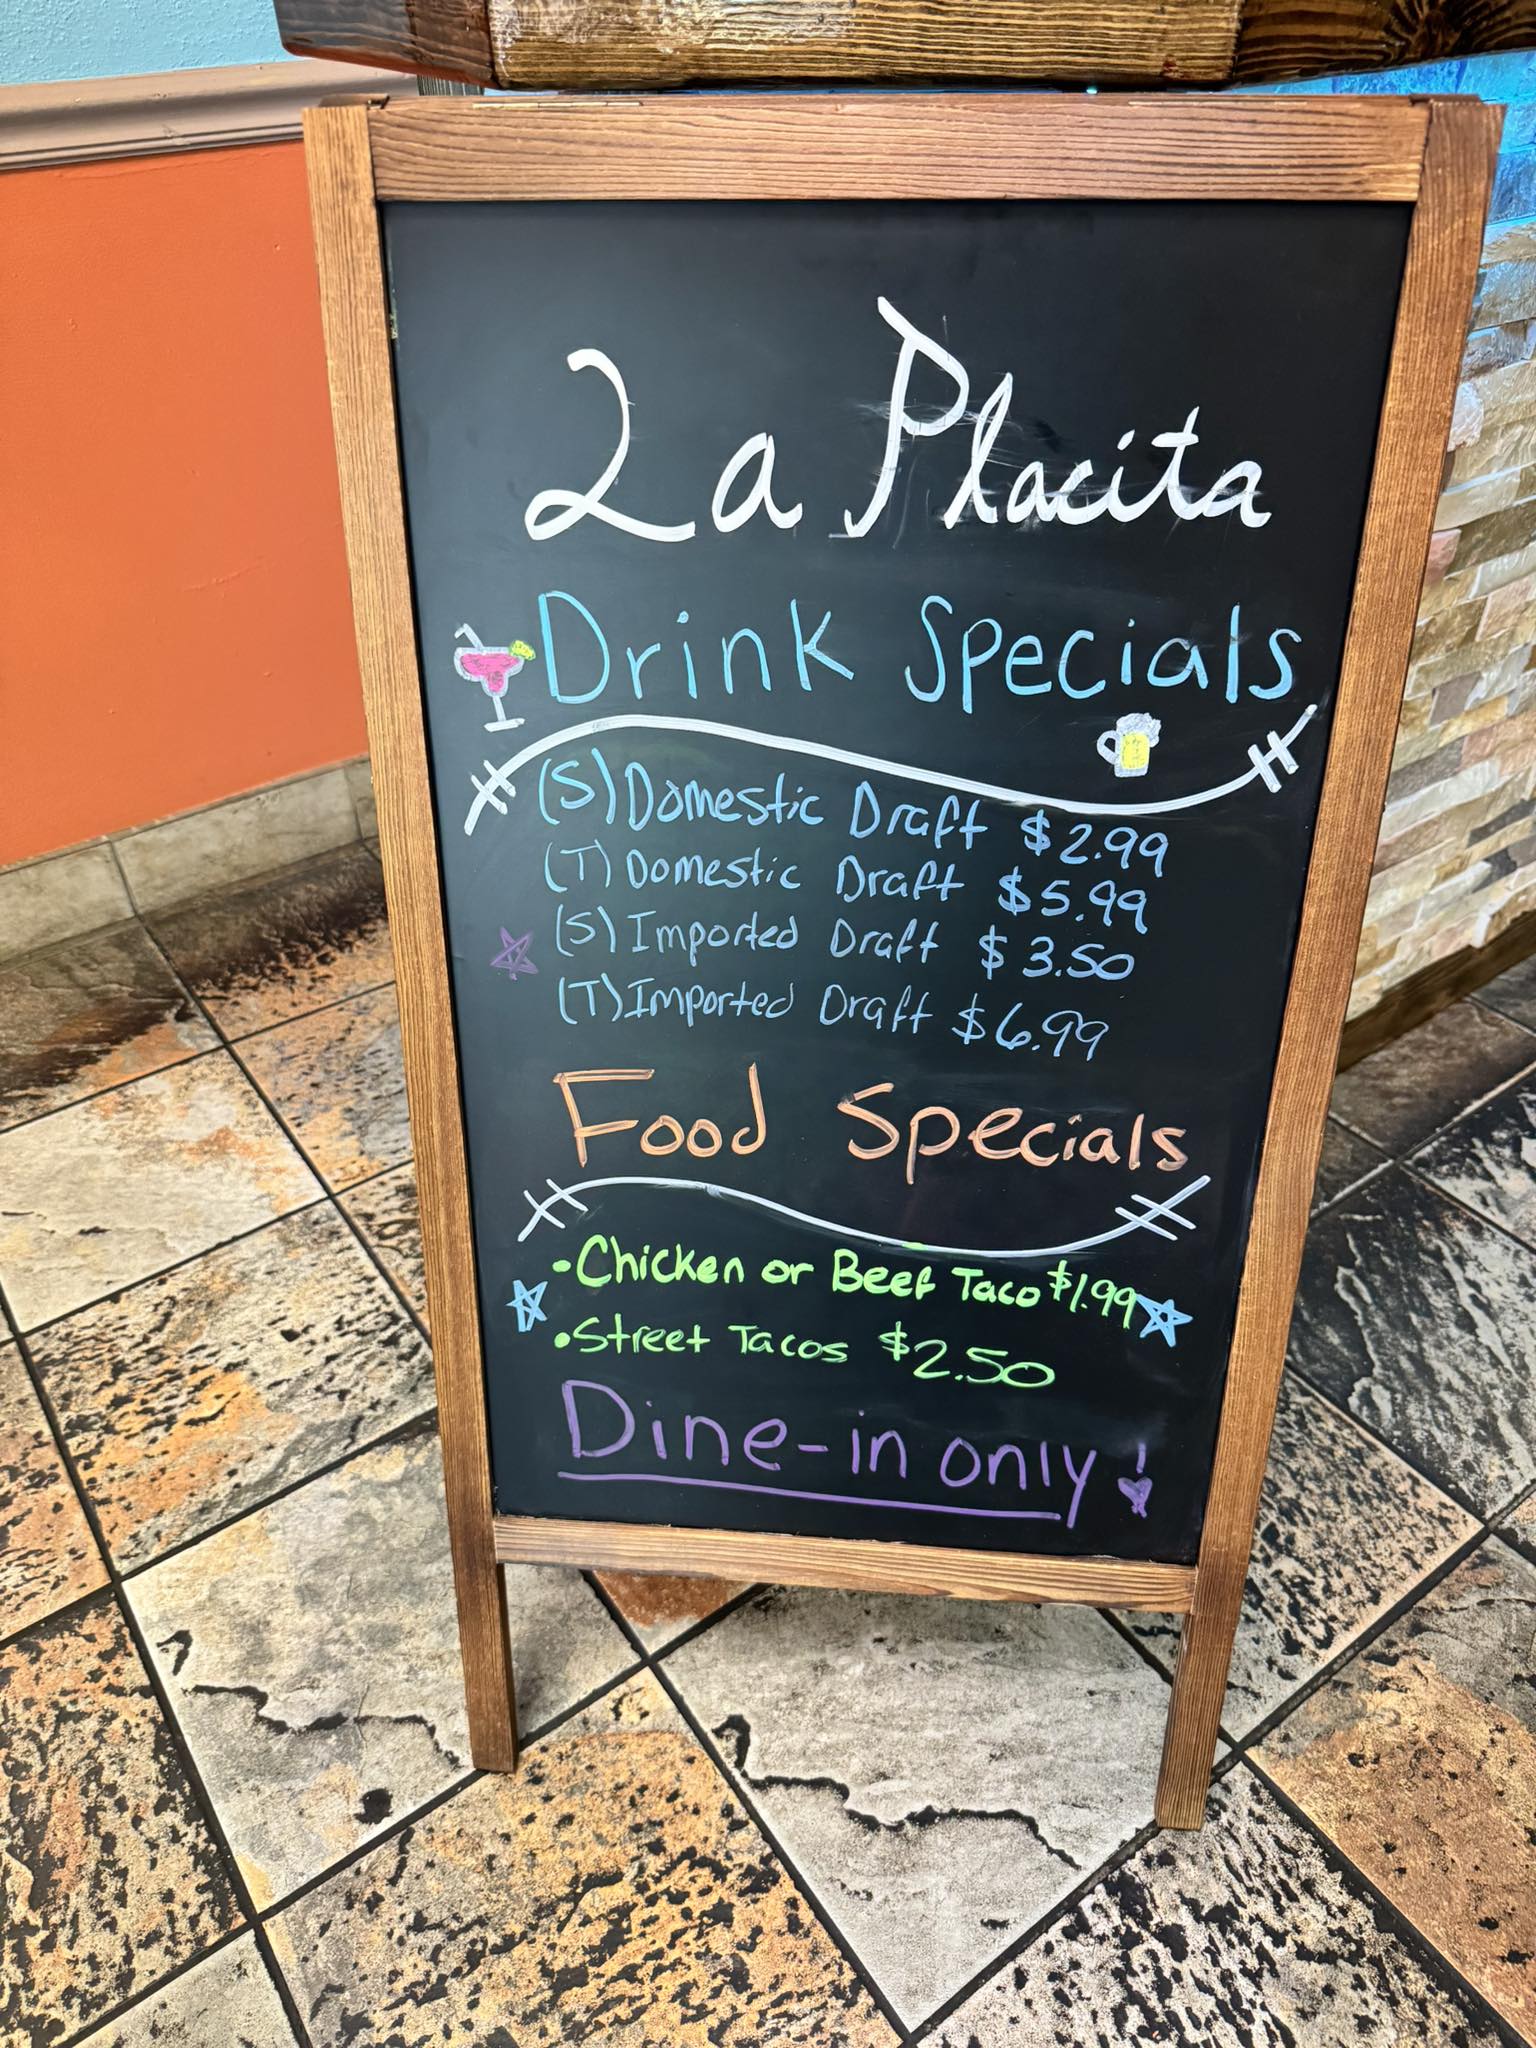 La Placita
Drink Specials
(S) Domestic Draft $2.99
(T) Domestic Draft $5.99
(S) Imported Draft $3.50
(T) Imported Draft $6.99
Food Specials
•Chicken or Beef Taco $1.99
•Street Tacos $2.50
Dine-in only!